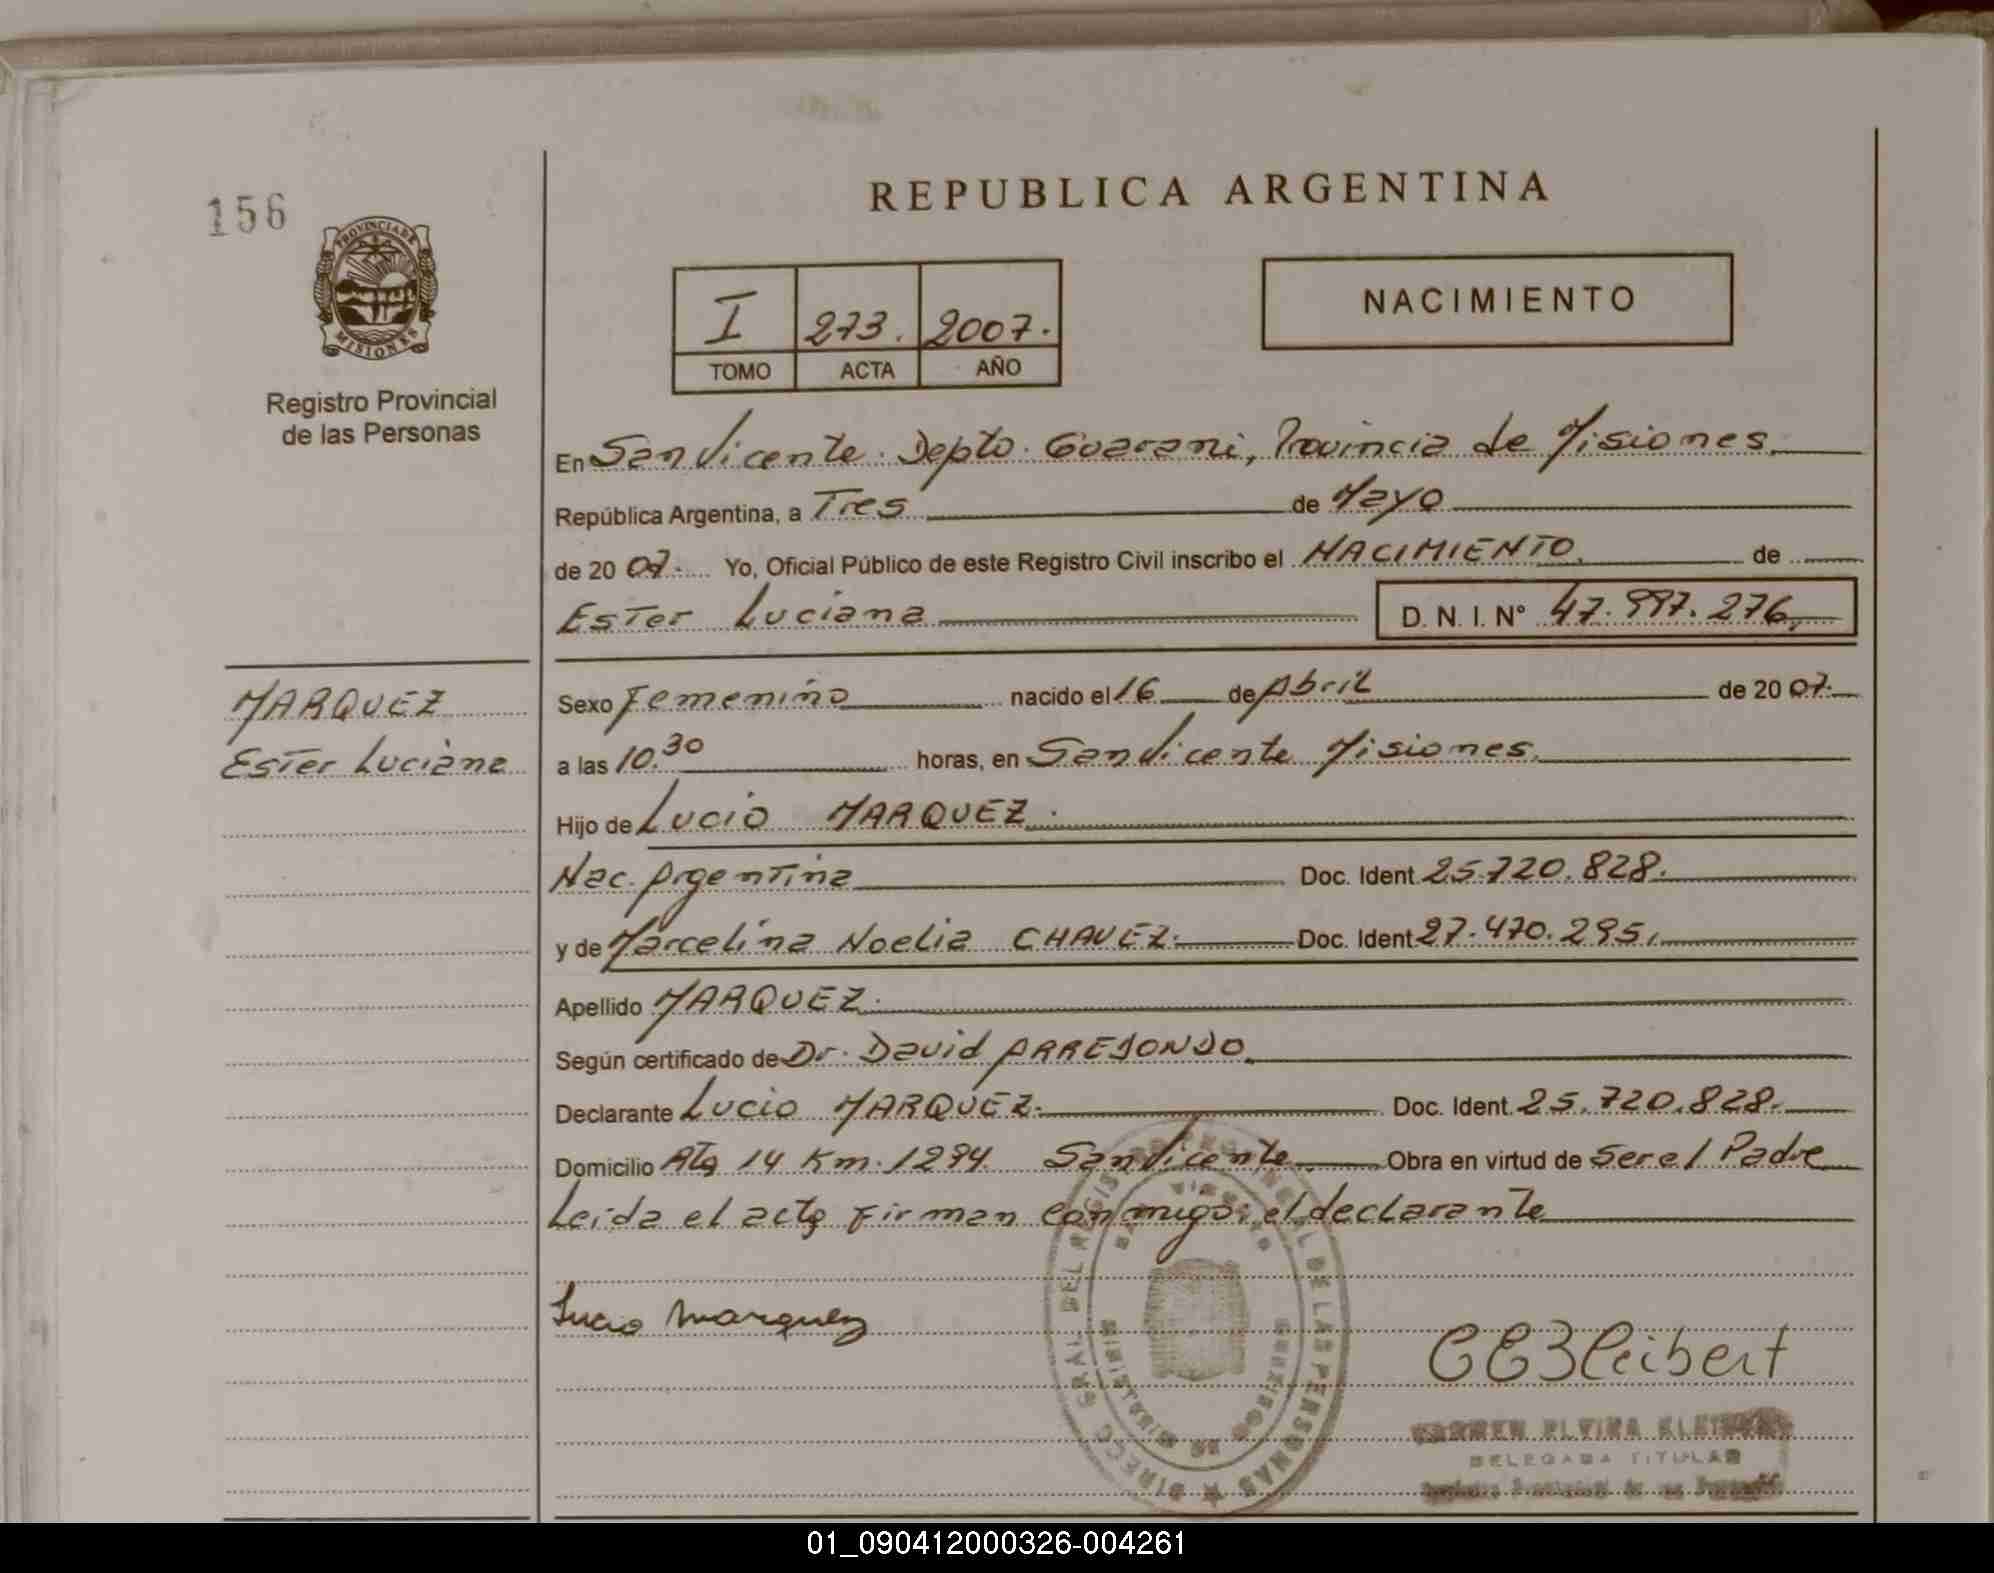 156
REPUBLICA ARGENTINA
PROVINCIA DE MISIONES
Registro Provincial
de las Personas
I 273. 2007.
TOMO ACTA AÑO
NACIMIENTO
En San Vicente. Depto. Guarani, Provincia de Misiones.
República Argentina, a Tres de Mayo
de 20 07. Yo, Oficial Público de este Registro Civil inscribo el NACIMIENTO. de
Ester Luciana D. N. I. N° 47.997.276,
MARQUEZ
Ester Luciana
Sexo Femenino nacido el 16 de Abril de 20 07.
a las 10.30 horas, en San Vicente Misiones.
Hijo de Lucio MARQUEZ.
Nac. Argentina Doc. Ident. 25.720.828.
y de Marcelina Noelia CHAVEZ. Doc. Ident. 27.470.295.
Apellido MARQUEZ.
Según certificado de Dr. David ARREDONDO.
Declarante Lucio MARQUEZ. Doc. Ident. 25.720.828.
Domicilio Rta 14 Km. 1294. San Vicente Obra en virtud de Ser el Padre
Leida el acta Firman conmigo; el declarante
Lucio Marquez
DIRECC. GRAL. DEL REGISTRO PROVINCIAL DE LAS PERSONAS
DELEGADA TITULAR
01_090412000326-004261